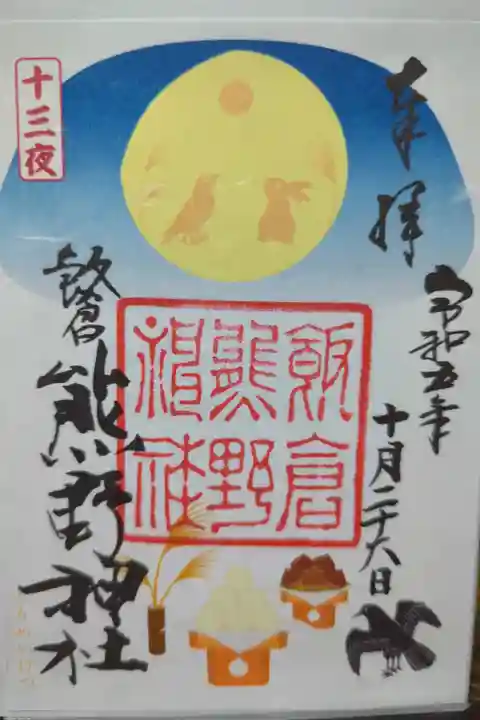 奉拝
令和五年
十月二十六日
十三夜
飯倉
熊野
神社
飯倉
熊野神社